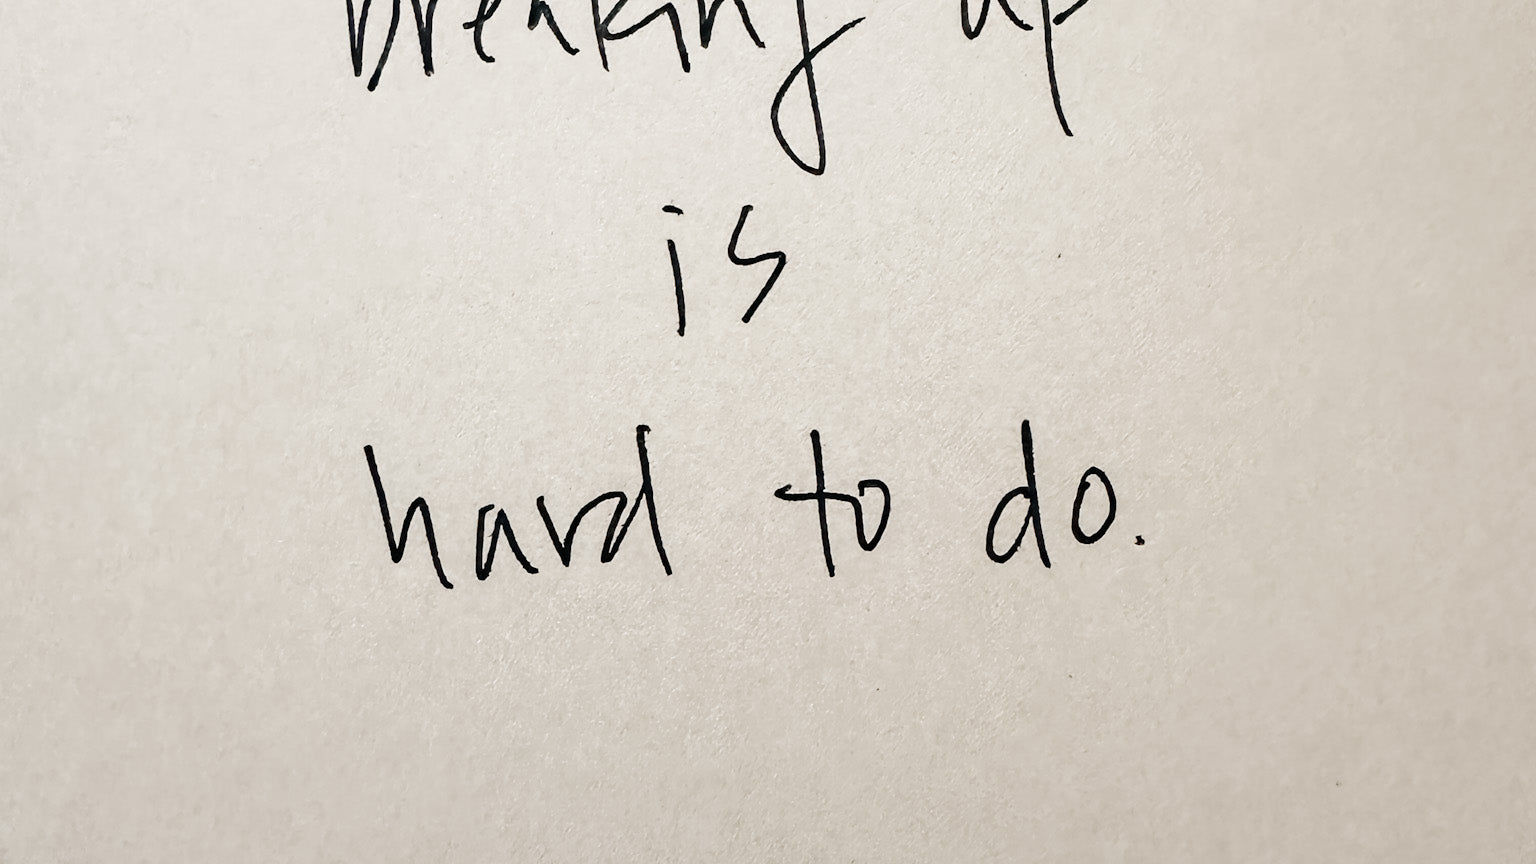 breaking up
is
hard to do.